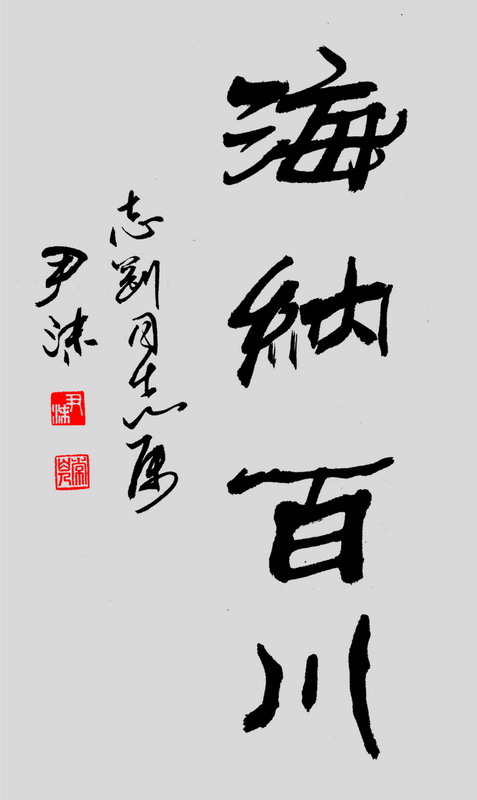 海納百川
志剛同志屬
尹沫
尹沫